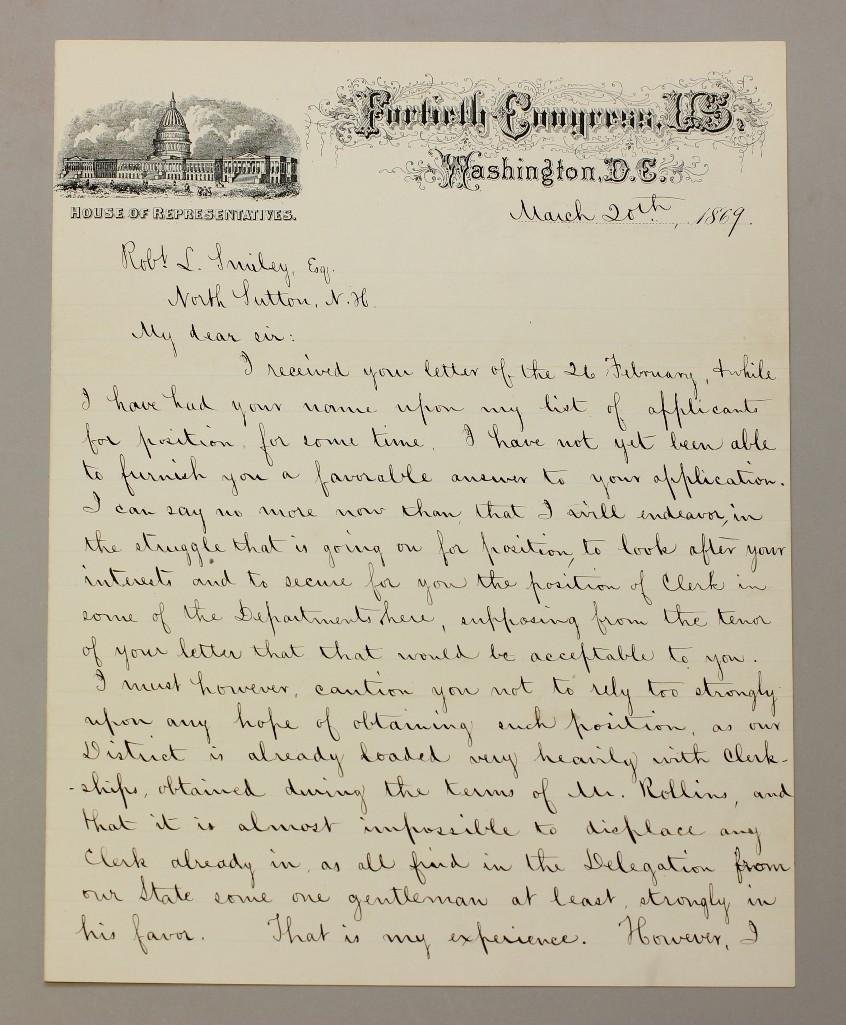 Fortieth Congress, U.S.
Washington, D.C.
HOUSE OF REPRESENTATIVES.
March 20th, 1869.
Robt. L. Smiley, Esq.
North Sutton, N.H.
My dear sir:
I received your letter of the 26 February, & while
I have had your name upon my list of applicants
for position for some time, I have not yet been able
to furnish you a favorable answer to your application.
I can say no more now than that I will endeavor, in
the struggle that is going on for position, to look after your
interests and to secure for you the position of Clerk in
some of the Departments here, supposing from the tenor
of your letter that that would be acceptable to you.
I must however, caution you not to rely too strongly
upon any hope of obtaining such position, as our
District is already loaded very heavily with Clerk-
-ships, obtained during the terms of Mr. Rollins, and
that it is almost impossible to displace any
Clerk already in, as all find in the Delegation from
our State some one gentleman at least, strongly in
his favor. That is my experience. However, I